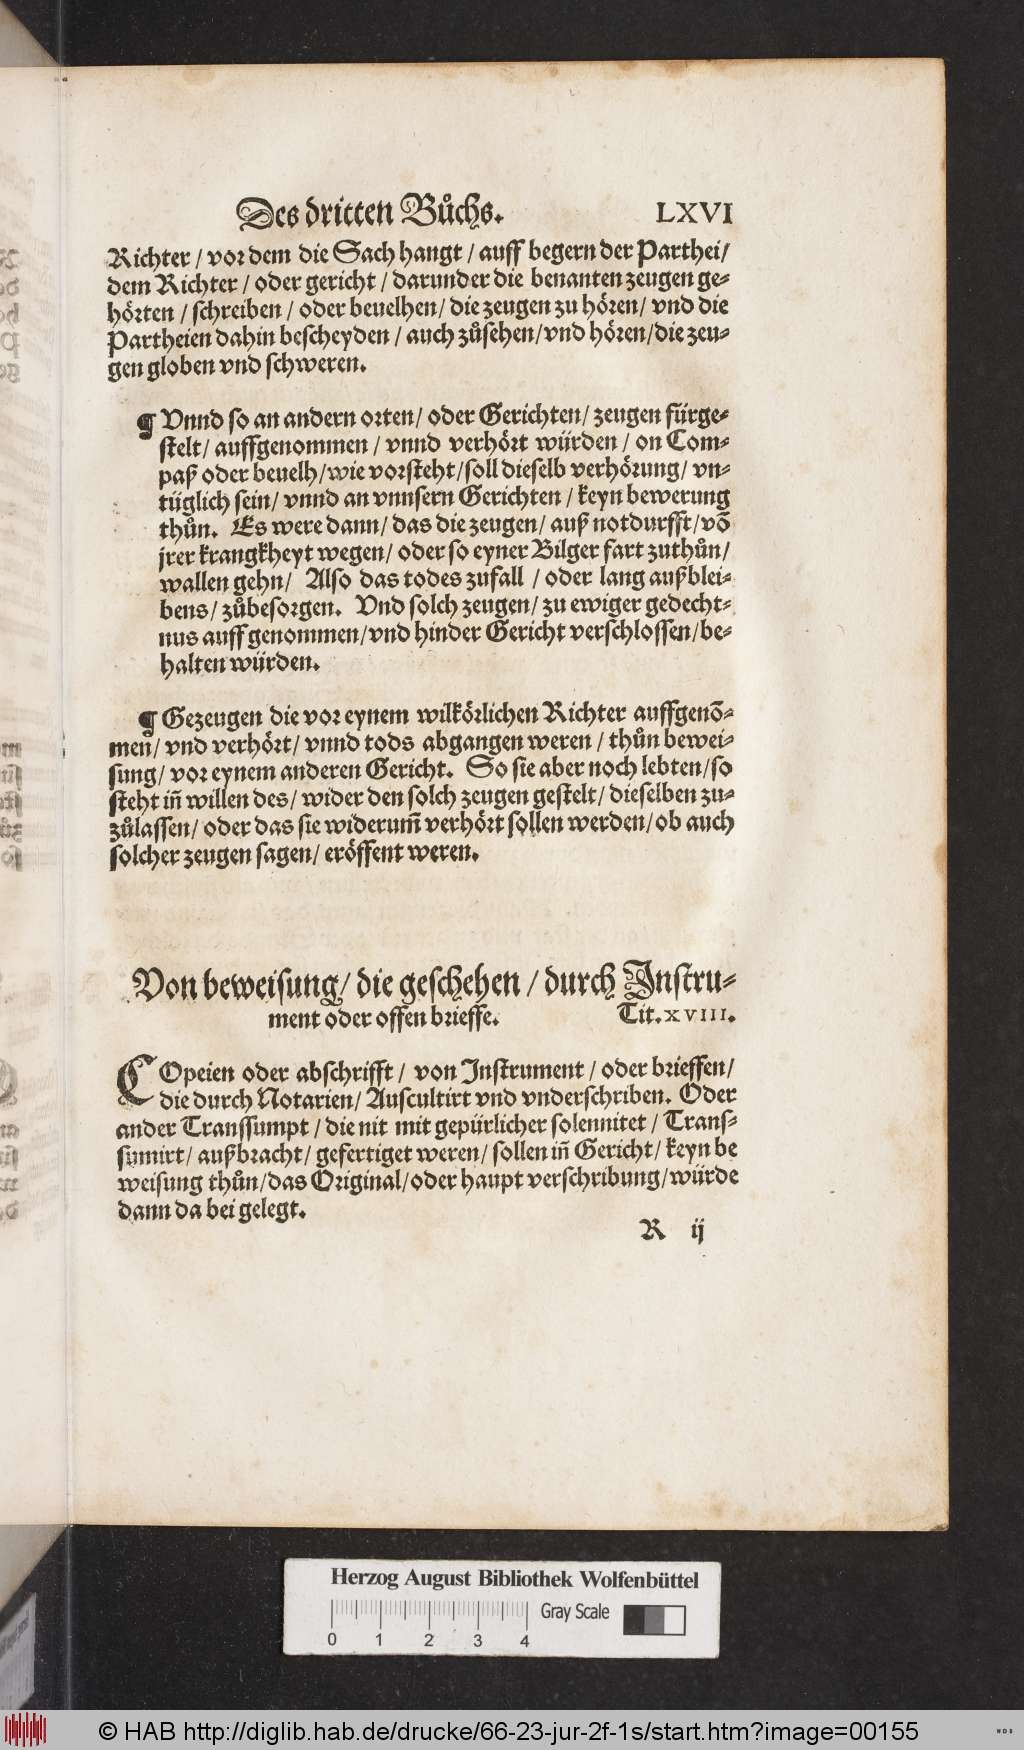 Des dritten Bůchs. LXVI
Richter / vor dem die Sach hangt / auff begern der Parthei/
dem Richter / oder gericht / darunder die benanten zeugen ge⸗
hörten / schreiben / oder beuelhen / die zeugen zu hören / vnd die
Partheien dahin bescheyden / auch zůsehen/vnd hören/die zeu⸗
gen globen vnd schweren.
¶ Vnnd so an andern orten/ oder Gerichten/ zeugen fürge⸗
stelt/ auffgenommen / vnnd verhört würden / on Com⸗
paß oder beuelh/wie vorsteht/soll dieselb verhörung/ vn⸗
tüglich sein/ vnnd an vnnsern Gerichten / keyn bewerung
thůn. Es were dann/ das die zeugen/ auß notdurfft/võ
jrer krangkheyt wegen/ oder so eyner Bilger fart zuthůn/
wallen gehn/ Also das todes zufall / oder lang außblei⸗
bens/ zůbesorgen. Vnd solch zeugen/ zu ewiger gedecht⸗
nus auff genommen/vnd hinder Gericht verschlossen/be⸗
halten würden.
¶ Gezeugen die vor eynem wilkörlichen Richter auffgenõ⸗
men/ vnd verhört/ vnnd tods abgangen weren / thůn bewei⸗
sung/ vor eynem anderen Gericht. So sie aber noch lebten/so
steht iñ willen des/ wider den solch zeugen gestelt/ dieselben zu⸗
zůlassen/ oder das sie widerum̃ verhört sollen werden/ob auch
solcher zeugen sagen/ eröffent weren.
Von beweisung/ die geschehen / durch Instru⸗
ment oder offen brieffe. Tit. XVIII.
COpeien oder abschrifft/ von Instrument / oder brieffen/
die durch Notarien/ Auscultirt vnd vnderschriben. Oder
ander Transsumpt / die nit mit gepürlicher solennitet / Trans⸗
sumirt/ außbracht/ gefertiget weren/ sollen iñ Gericht/ keyn be
weisung thůn/das Original/oder haupt verschribung/würde
dann da bei gelegt.
R ij
Herzog August Bibliothek Wolfenbüttel
Gray Scale
0 1 2 3 4
© HAB http://diglib.hab.de/drucke/66-23-jur-2f-1s/start.htm?image=00155